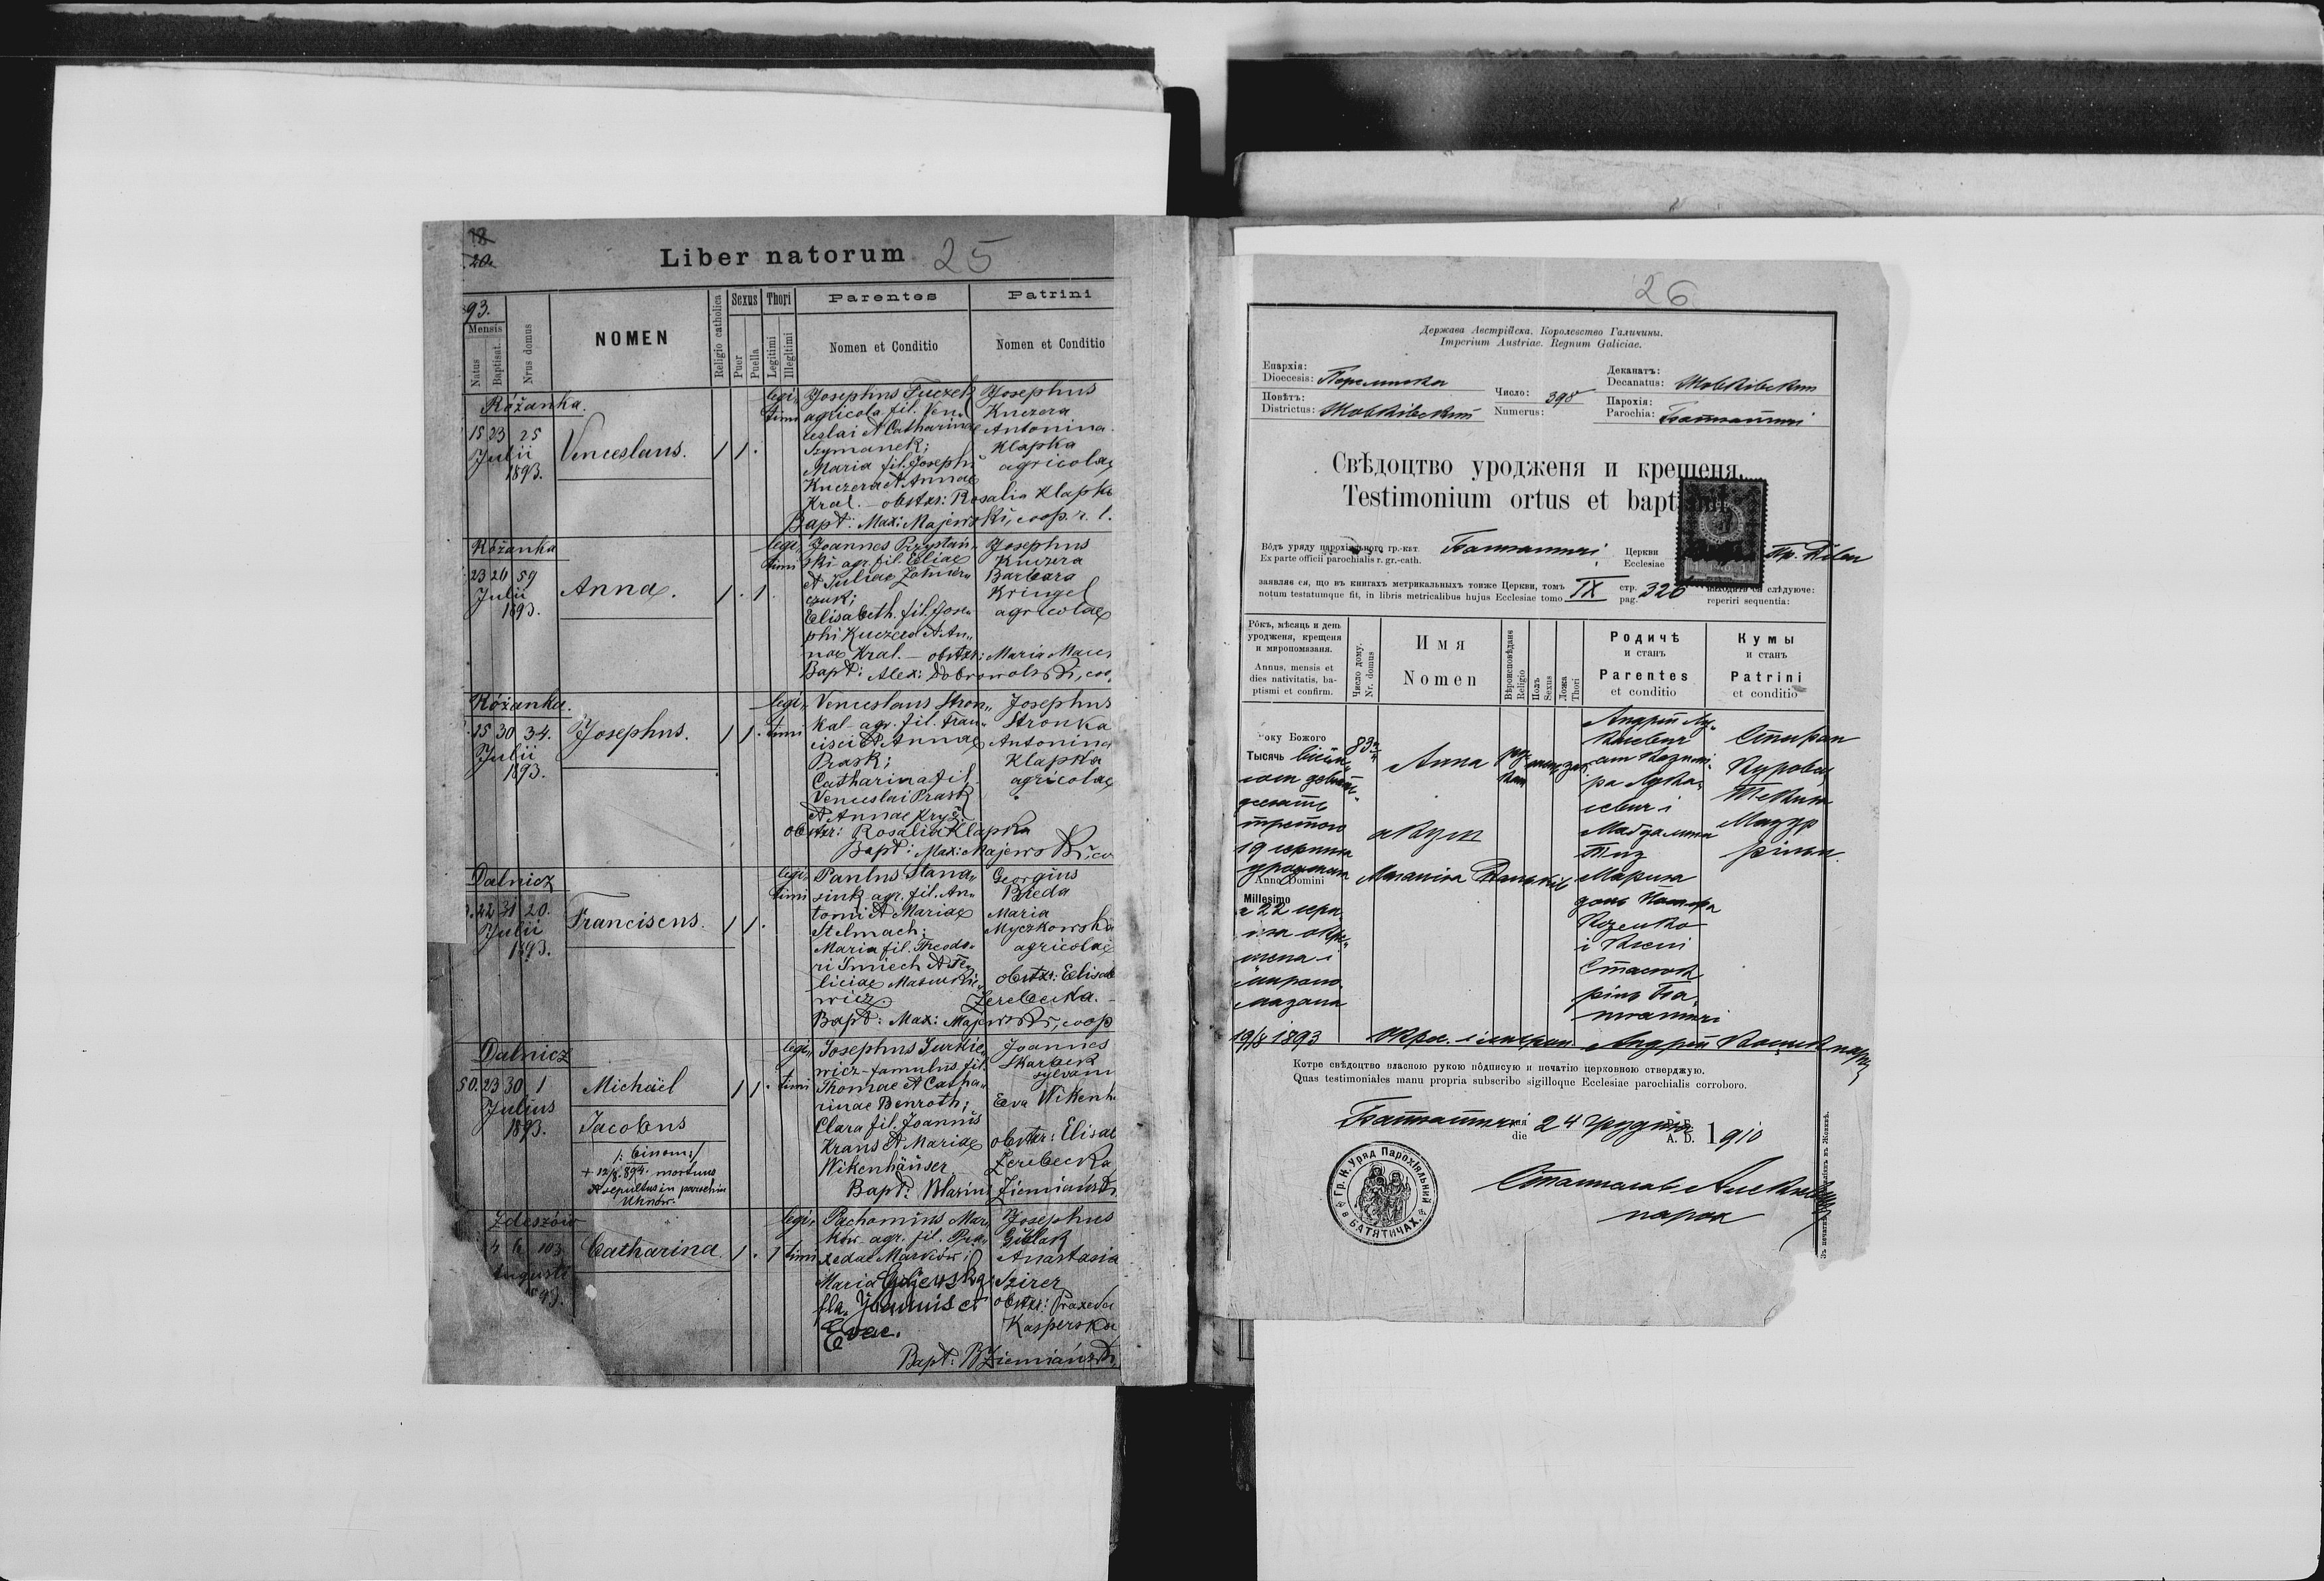 18
20.
Liber natorum 25
93.
Mensis
Natus
Baptisat.
Nrus domus
NOMEN
Religio catholica
Sexus
Puer
Puella
Thori
Legitimi
Illegitimi
Parentes
Nomen et Conditio
Patrini
Nomen et Conditio
Różanka.
15 23 25
Julii
1893.
Venceslaus.
1 1 .
legi„
timi
Josephus Tuczek
agricola fil. Ven„
ceslai & Catharinae
Szymanek;
Maria fil. Josephi
Kuczera & Annae
Kral. – obstxs: Rosalia Klapka
Bapt: Max: Majewski, coop. r. l.
Josephus
Kuczera
Antonina
Klapka
agricolae
Różanka
23 26 59
Julii
1893.
Anna.
1 . 1
legi„
timi
Joannes Przystań„
ski agr. fil. Eliae
& Juliae Zołnier„
czuk;
Elisabeth. fil. Jose„
phi Kuczera & An„
nae Kral. – obstxs: Maria Mac
Bapt: Alex: Dobrowolski, coo
Josephus
Kuczera
Barbara
Kringel
agricolae
Różanka.
15 30 34.
Julii
1893.
Josephus.
1 1 .
legi„
timi
Venceslaus Stron„
kal agr. fil. Fran„
cisci & Annae
Prask;
Catharina fil.
Venceslai Prask
& Annae Kryž
obstxr: Rosalia Klapka
Bapt: Max: Majewski, co
Josephus
Stronka
Antonina
Klapka
agricolae
Dalnicz
22 31 20.
Julii
1893.
Franciscus.
1 1 .
legi„
timi
Paulus Stana„
siuk agr. fil. An„
tonii & Mariae
Stelmach;
Maria fil. Theodo„
ri Smiech & Fe„
liciae Masurkie„
wicz
Bapt: Max: Majewski, coop
Georgius
Breda
Maria
Myczkowska
agricolae
obstxr: Elisab
Zerebecka.
Dalnicz
50. 23 30 1
Julius
1893.
Michaël
Jacobus
/: binom:/
+ 12/8. 894. mortuus
& sepultus in parochia
Uhnów.
1 1 .
legi„
timi
Josephus Jurkie„
wicz – famulus fil.
Thomae & Catha„
rinae Benroth;
Clara fil. Joannis
Krans & Mariae
Wikenhäuser.
Bapt: Blasius Ziemiański
Joannes
Skarbek
sylvanu
Eva Wikenh
obstxr: Elisab
Zerebecka
Zdeszów
4 6 103
Augusti
893.
Catharina.
1 . 1
legi„
timi
Pachomius Mar„
ków agr. fil. Pra„
xedae Marków;
Maria
fla. Joannis et
Evae.
Bapt: B Ziemiański,
Josephus
Guślak
Anastasia
Szirer
obstxr: Praxeda
Kasperska
26
Держава Австрійска. Королевство Галичины.
Imperium Austriae. Regnum Galiciae.
Епархія:
Dioecesis: Перемиска
Повѣтъ:
Districtus: Жовківский
Число:
Numerus: 398
Деканатъ:
Decanatus: Жовківский
Парохія:
Parochia: Батятичі
Свѣдоцтво уродженя и крещеня.
Testimonium ortus et bapt
Вôдъ уряду парохіяльного гр.-кат.
Ex parte officii parochialis r. gr.-cath.
Батятичі
Церкви
Ecclesiae
заявляє ся, що въ книгахъ метрикальныхъ тоиже Церкви, томъ
notum testatumque fit, in libris metricalibus hujus Ecclesiae tomo
IX
стр.
pag. 326
находить ся слѣдуюче:
reperiri sequentia:
Рôкъ, мѣсяць и день
уродженя, крещеня
и миропомазаня.
Annus, mensis et
dies nativitatis, ba-
ptismi et confirm.
Число дому.
Nr. domus
Имя
Nomen
Вѣроисповѣдане
Religio
Полъ
Sexus
Ложа
Thori
Родичѣ
и станъ
Parentes
et conditio
Кумы
и станъ
Patrini
et conditio
Року Божого
Тысячь вісїм„
сот девять„
десять
третого
19 серпня
уроджена
Anno Domini
Millesimo
а 22 серп„
ня окре„
щена і
миропо
мазана
83
Анна
акуш
Андрій Лу„
касевич
син Казими„
ра Лука„
севич і
Магдалина
Марина
донь Петра
Козенко
і Ксені
Стасюк
ріль. Ба„
тятичі
Стефан
Курова
Текля
Мазур
рільн.
19/8 1893
окре. і мирпом.
Андрей
парох
Котре свѣдоцтво власною рукою пôдписую и печатію церковною стверджую.
Quas testimoniales manu propria subscribo sigilloque Ecclesiae parochialis corroboro.
Батятичі
дня
die 24 грудня
Р. Б.
A. D. 1910
Гр. К. Уряд Парохіяльний
в БАТЯТИЧАХ
Станислав
парох